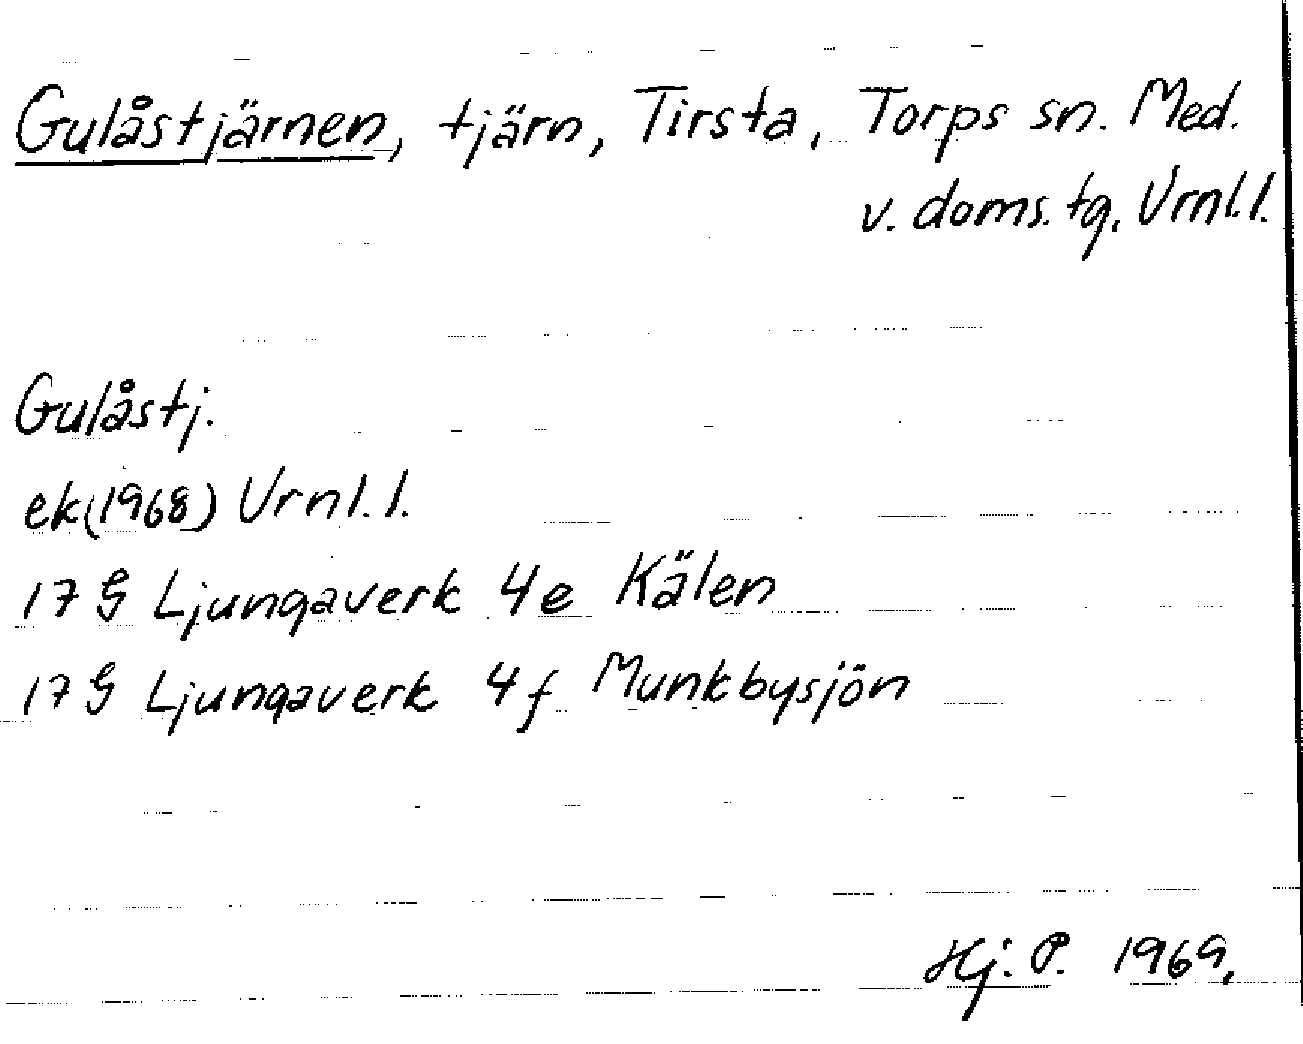 Gulåstjärnen, tjärn, Tirsta, Torps sn. Med.
v. doms. tg. Vrnl.l.
Gulåstj.
ek(1968) Vrnl.l.
17 G Ljungaverk 4e Kälen
17 G Ljungaverk 4f Munkbysjön
Hj. P. 1969.